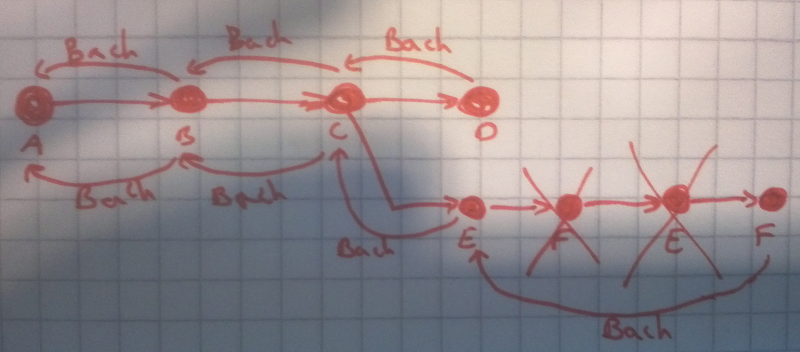 Bach Bach Bach
A B C D
Bach Bach
Bach E F E F
Bach